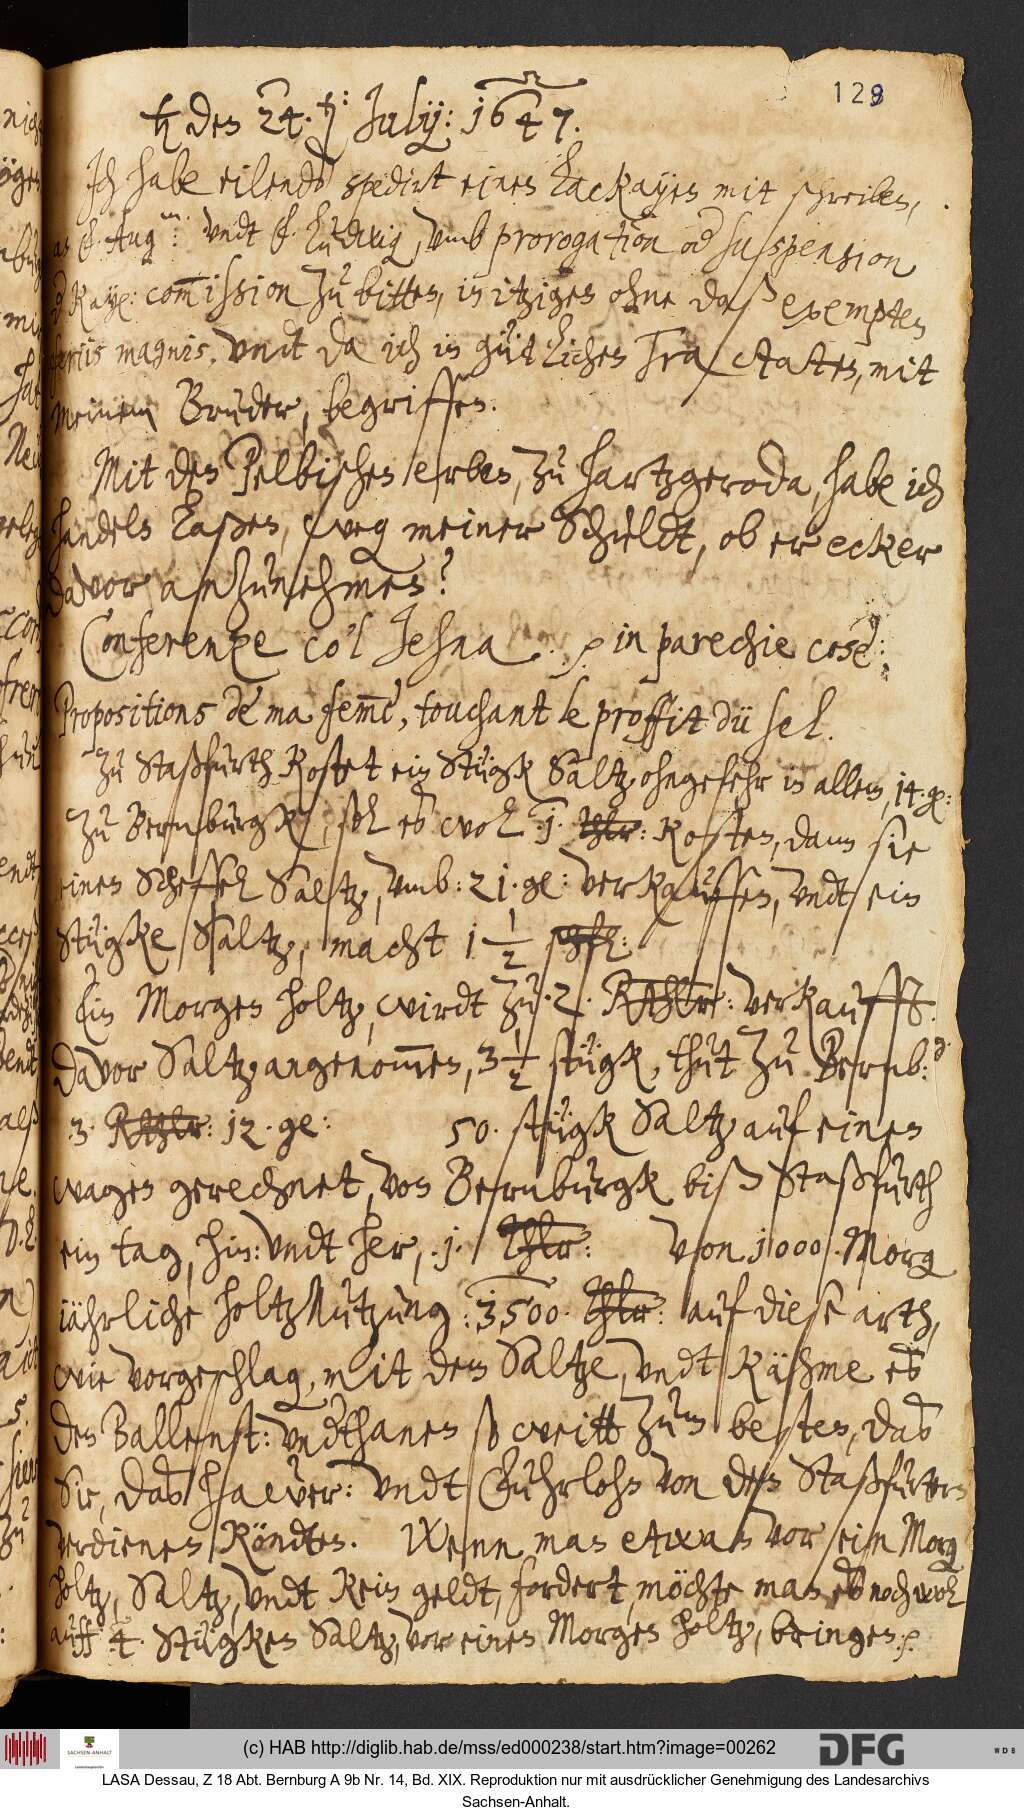 129
♄ den 24. Julij: 1647.
Ich habe eilends spedirt einen Lackayen mit schreiben,
an F. Aug: undt F. Ludwig, umb prorogation od suspension
d Kay: commission zu bitten, in itzigen ohne daß exempten
feriis magnis. undt da ich in gütlichen Tractaten, mit
meinem Bruder, begriffen.
Mit den Pelbischen erben, zu Hartzgeroda, habe ich
handeln laßen, weg meiner Schuldt, ob er ecker
davor anzunehmen?
Conferenze co'l Jehna p in parechie cose:
Propositions de ma femme, touchant le proffit dü sel.
Zu Staßfurth kostet ein Stügk Saltz, ohngefehr in allem, 14. ge:
Zu Bernburgk, soll es wol .1. Thlr: kosten, dann sie
einen Scheffel Saltz, umb: 21. ge: verkauffen, undt ein
Stügke Saltz, macht 1 1/2 schfl:
Ein Morgen holtz, wirdt zu .2. Rthlr: verkaufft.
Davor Saltz angenommen, 3 1/2 stügk, thut zu Bernb:
.3. Rthlr: 12. ge: 50. stügk Saltz auf einen
wagen gerechnet, von Bernburgk biß Staßfurth
ein tag, hin: undt her, .1. Thlr: Von 1000. Morg
iährliche holtz Nutzung: 3500. Thlr: auf diese arth,
wie vorgeschlag, mit dem Saltze, undt kähme es
den Ballenst: undthanen so weitt zum besten, das
Sie, das hawer: undt Fuhrlohn von den Staßfurtern
verdienen köndten. Wenn man etwas vor ein Morg
holtz, Saltz, undt kein geldt, fordert, möchte man es noch wol
auff .4. Stügken Saltz, vor einen Morgen holtz, bringen. p
(c) HAB http://diglib.hab.de/mss/ed000238/start.htm?image=00262
SACHSEN-ANHALT
DFG
WDB
LASA Dessau, Z 18 Abt. Bernburg A 9b Nr. 14, Bd. XIX. Reproduktion nur mit ausdrücklicher Genehmigung des Landesarchivs
Sachsen-Anhalt.